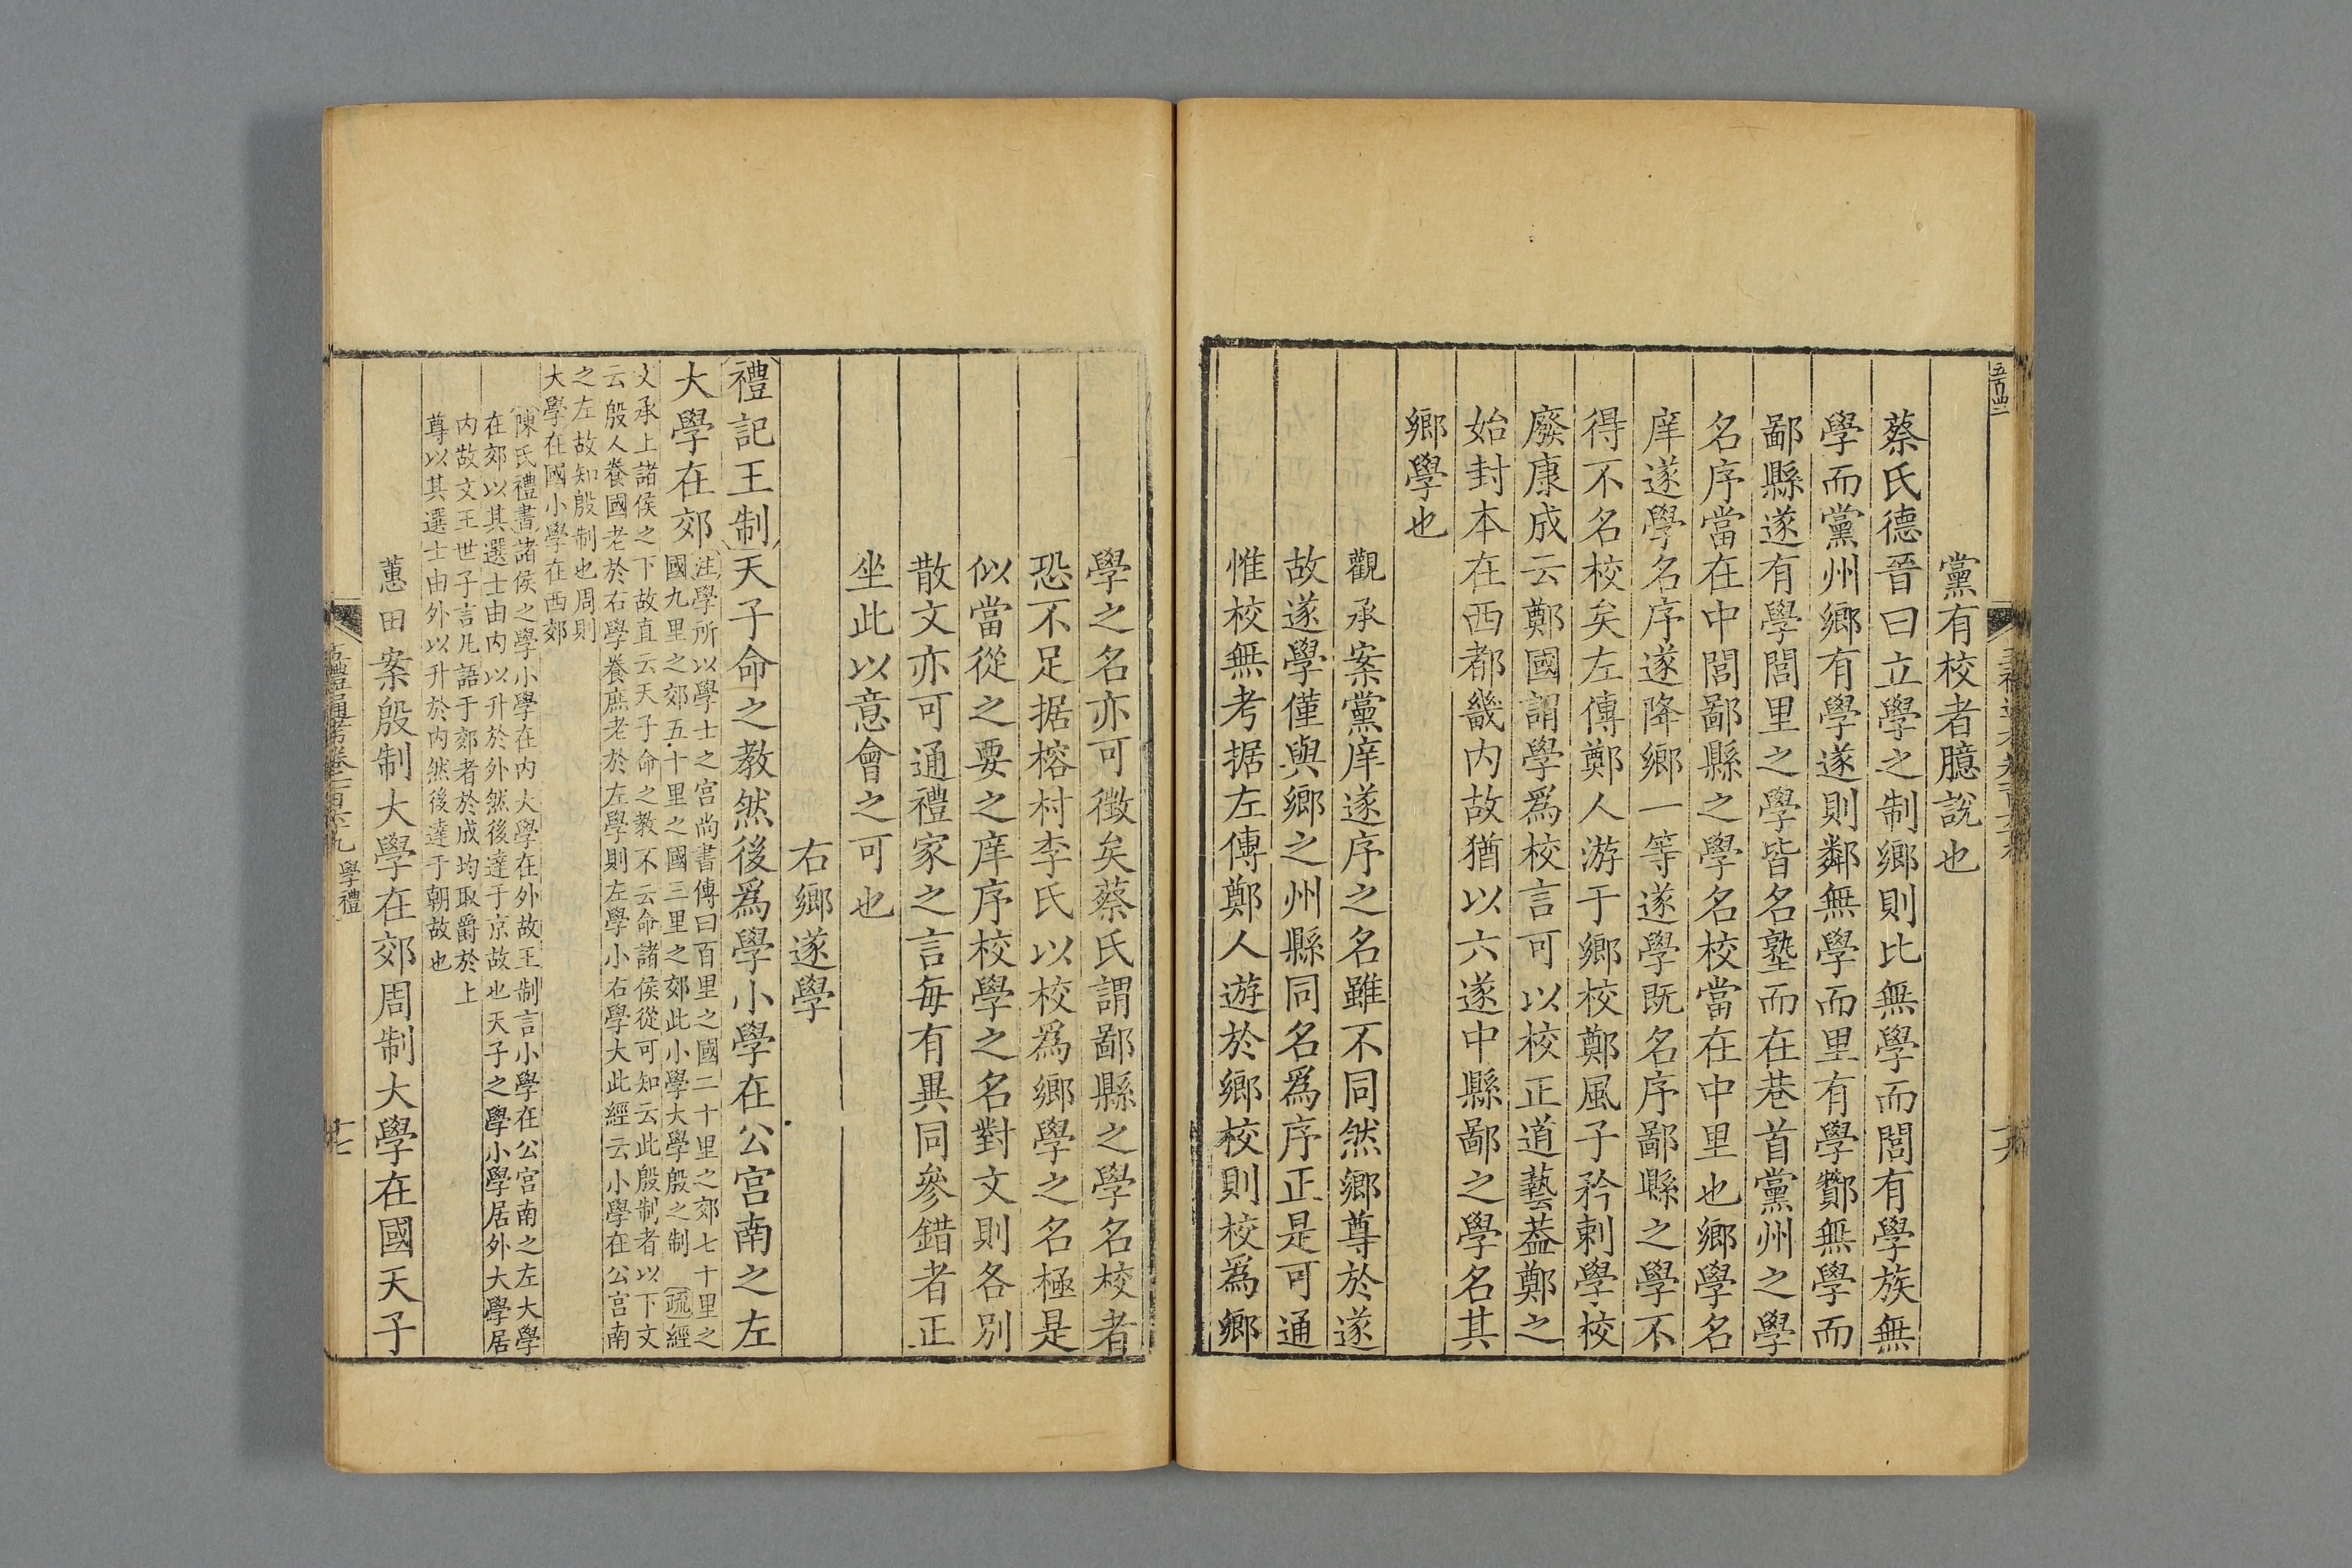 黨有校者臆說也
蔡氏德晉曰立學之制鄉則比無學而閭有學族無
學而黨州鄉有學遂則鄰無學而里有學酇無學而
鄙縣遂有學閭里之學皆名塾而在巷首黨州之學
名序當在中閭鄙縣之學名校當在中里也鄉學名
庠遂學名序遂降鄉一等遂學既名序鄙縣之學不
得不名校矣左傳鄭人游于鄉校鄭風子矜剌學校
廢康成云鄭國謂學爲校言可以校正道藝蓋鄭之
始封本在西都畿内故猶以六遂中縣鄙之學名其
鄉學也
觀承案黨庠遂序之名雖不同然鄉尊於遂
故遂學僅與鄉之州縣同名爲序正是可通
惟校無考据左傳鄭人遊於鄉校則校為鄉
學之名亦可徵矣蔡氏謂鄙縣之學名校者
恐不足据榕村李氏以校爲鄉學之名極是
似當從之要之庠序校學之名對文則各別
散文亦可通禮家之言每有異同參錯者正
坐此以意會之可也
右鄉遂學
禮記王制天子命之教然後爲學小學在公宫南之左
大學在郊
注學所以學士之宫尚書傳曰百里之國二十里之郊七十里之
國九里之郊五十里之國三里之郊此小學大學殷之制 疏經
文承上諸侯之下故直云天子命之教不云命諸侯從可知云此殷制者以下文
云殷人養國老於右學養庶老於左學則左學小右學大此經云小學在公宫南
之左故知殷制也周則
大學在國小學在西郊
陳氏禮書諸侯之學小學在内大學在外故王制言小學在公宫南之左大學
在郊以其選士由内以升於外然後達于京故也天子之學小學居外大學居
内故文王世子言凡語于郊者於成均取爵於上
尊以其選士由外以升於内然後達于朝故也
蕙田案殷制大學在郊周制大學在國天子
學禮